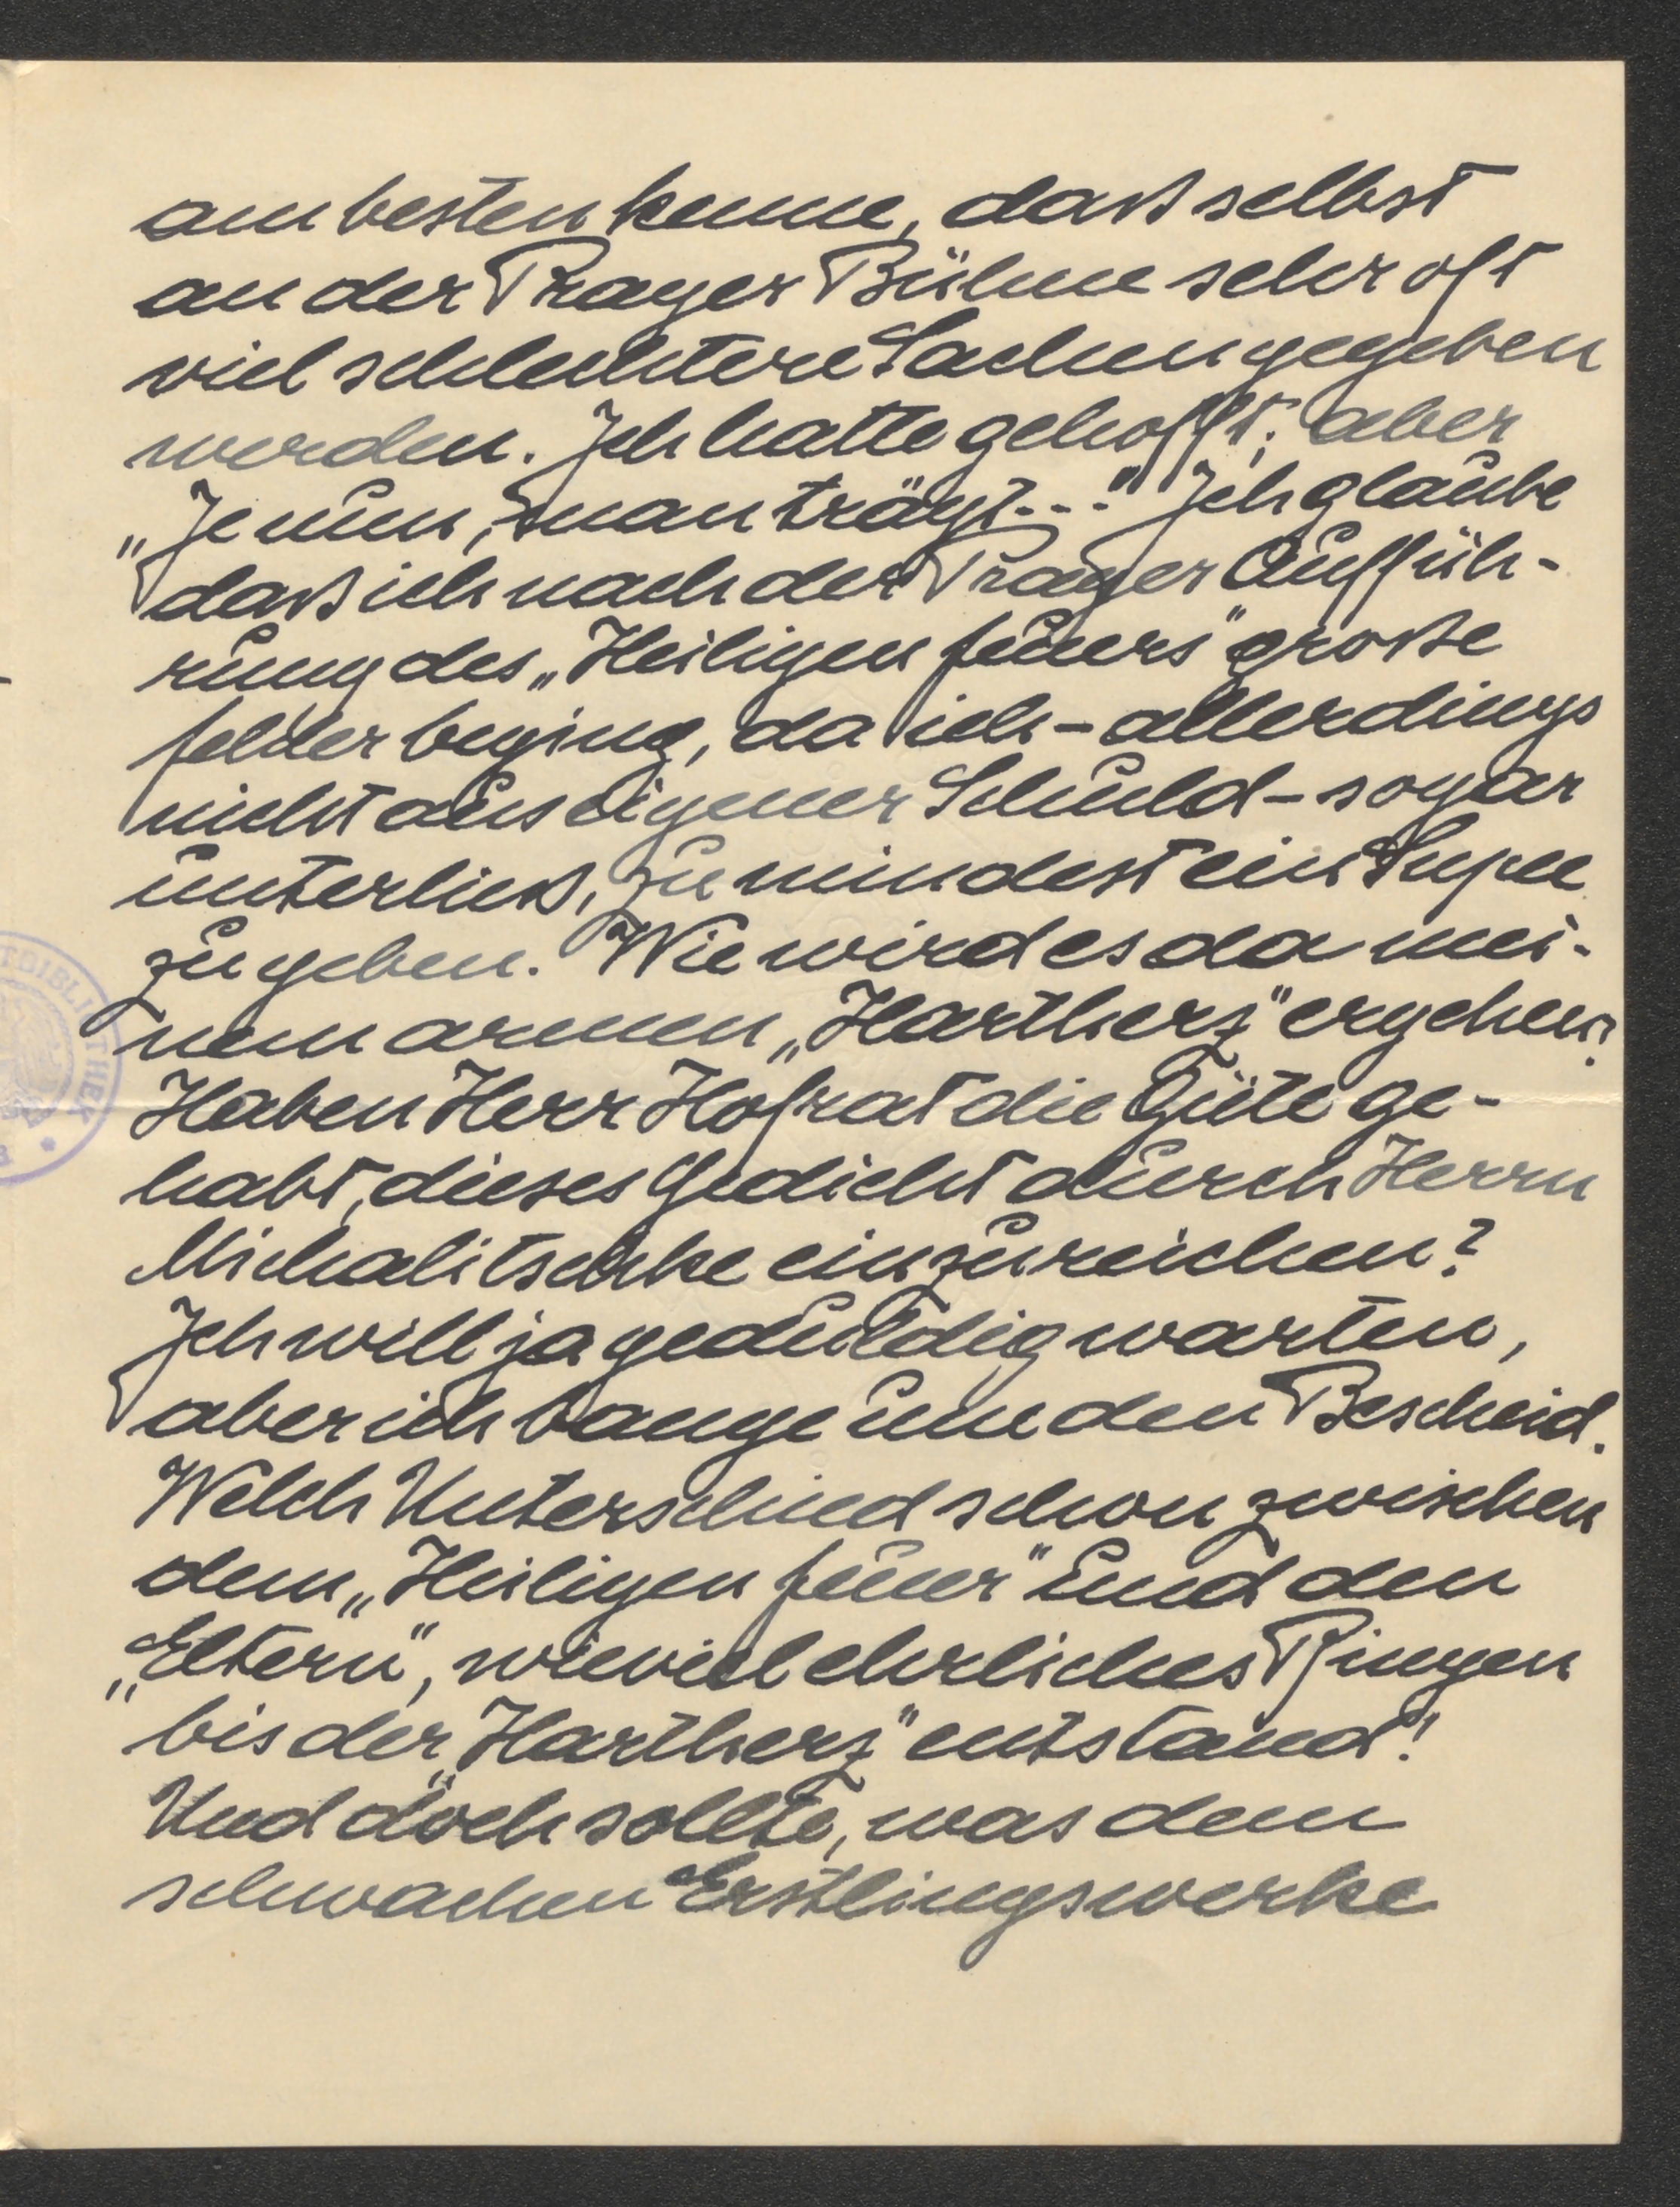 am besten kenne, daß selbst
an der Prager Bühne sehr oft
viel schlechtere Sachen gegeben
werden. Ich hatte gehofft; aber
„Je nun, man trägt...“ Ich glaube
daß ich nach der Prager Auffüh-
rung des „Heiligen Feuers“ große
Fehler beging, da ich – allerdings
nicht aus eigener Schuld – sogar
unterließ, zu mindest ein Supee
zu geben. Wie wird es da mei-
nem armen „Hartherz“ ergehen?
Haben Herr Hofrat die Güte ge-
habt, dieses Gedicht durch Herrn
Michalitschke einzureichen?
Ich will ja geduldig warten,
aber ich bange um den Bescheid.
Welch Unterschied schon zwischen
dem „Heiligen Feuer“ und den
„Eltern“, wieviel ehrliches Ringen
bis der „Hartherz“ entstand!
Und doch sollte, was dem
schwachen Erstlingswerke
BIBLIOTHEK